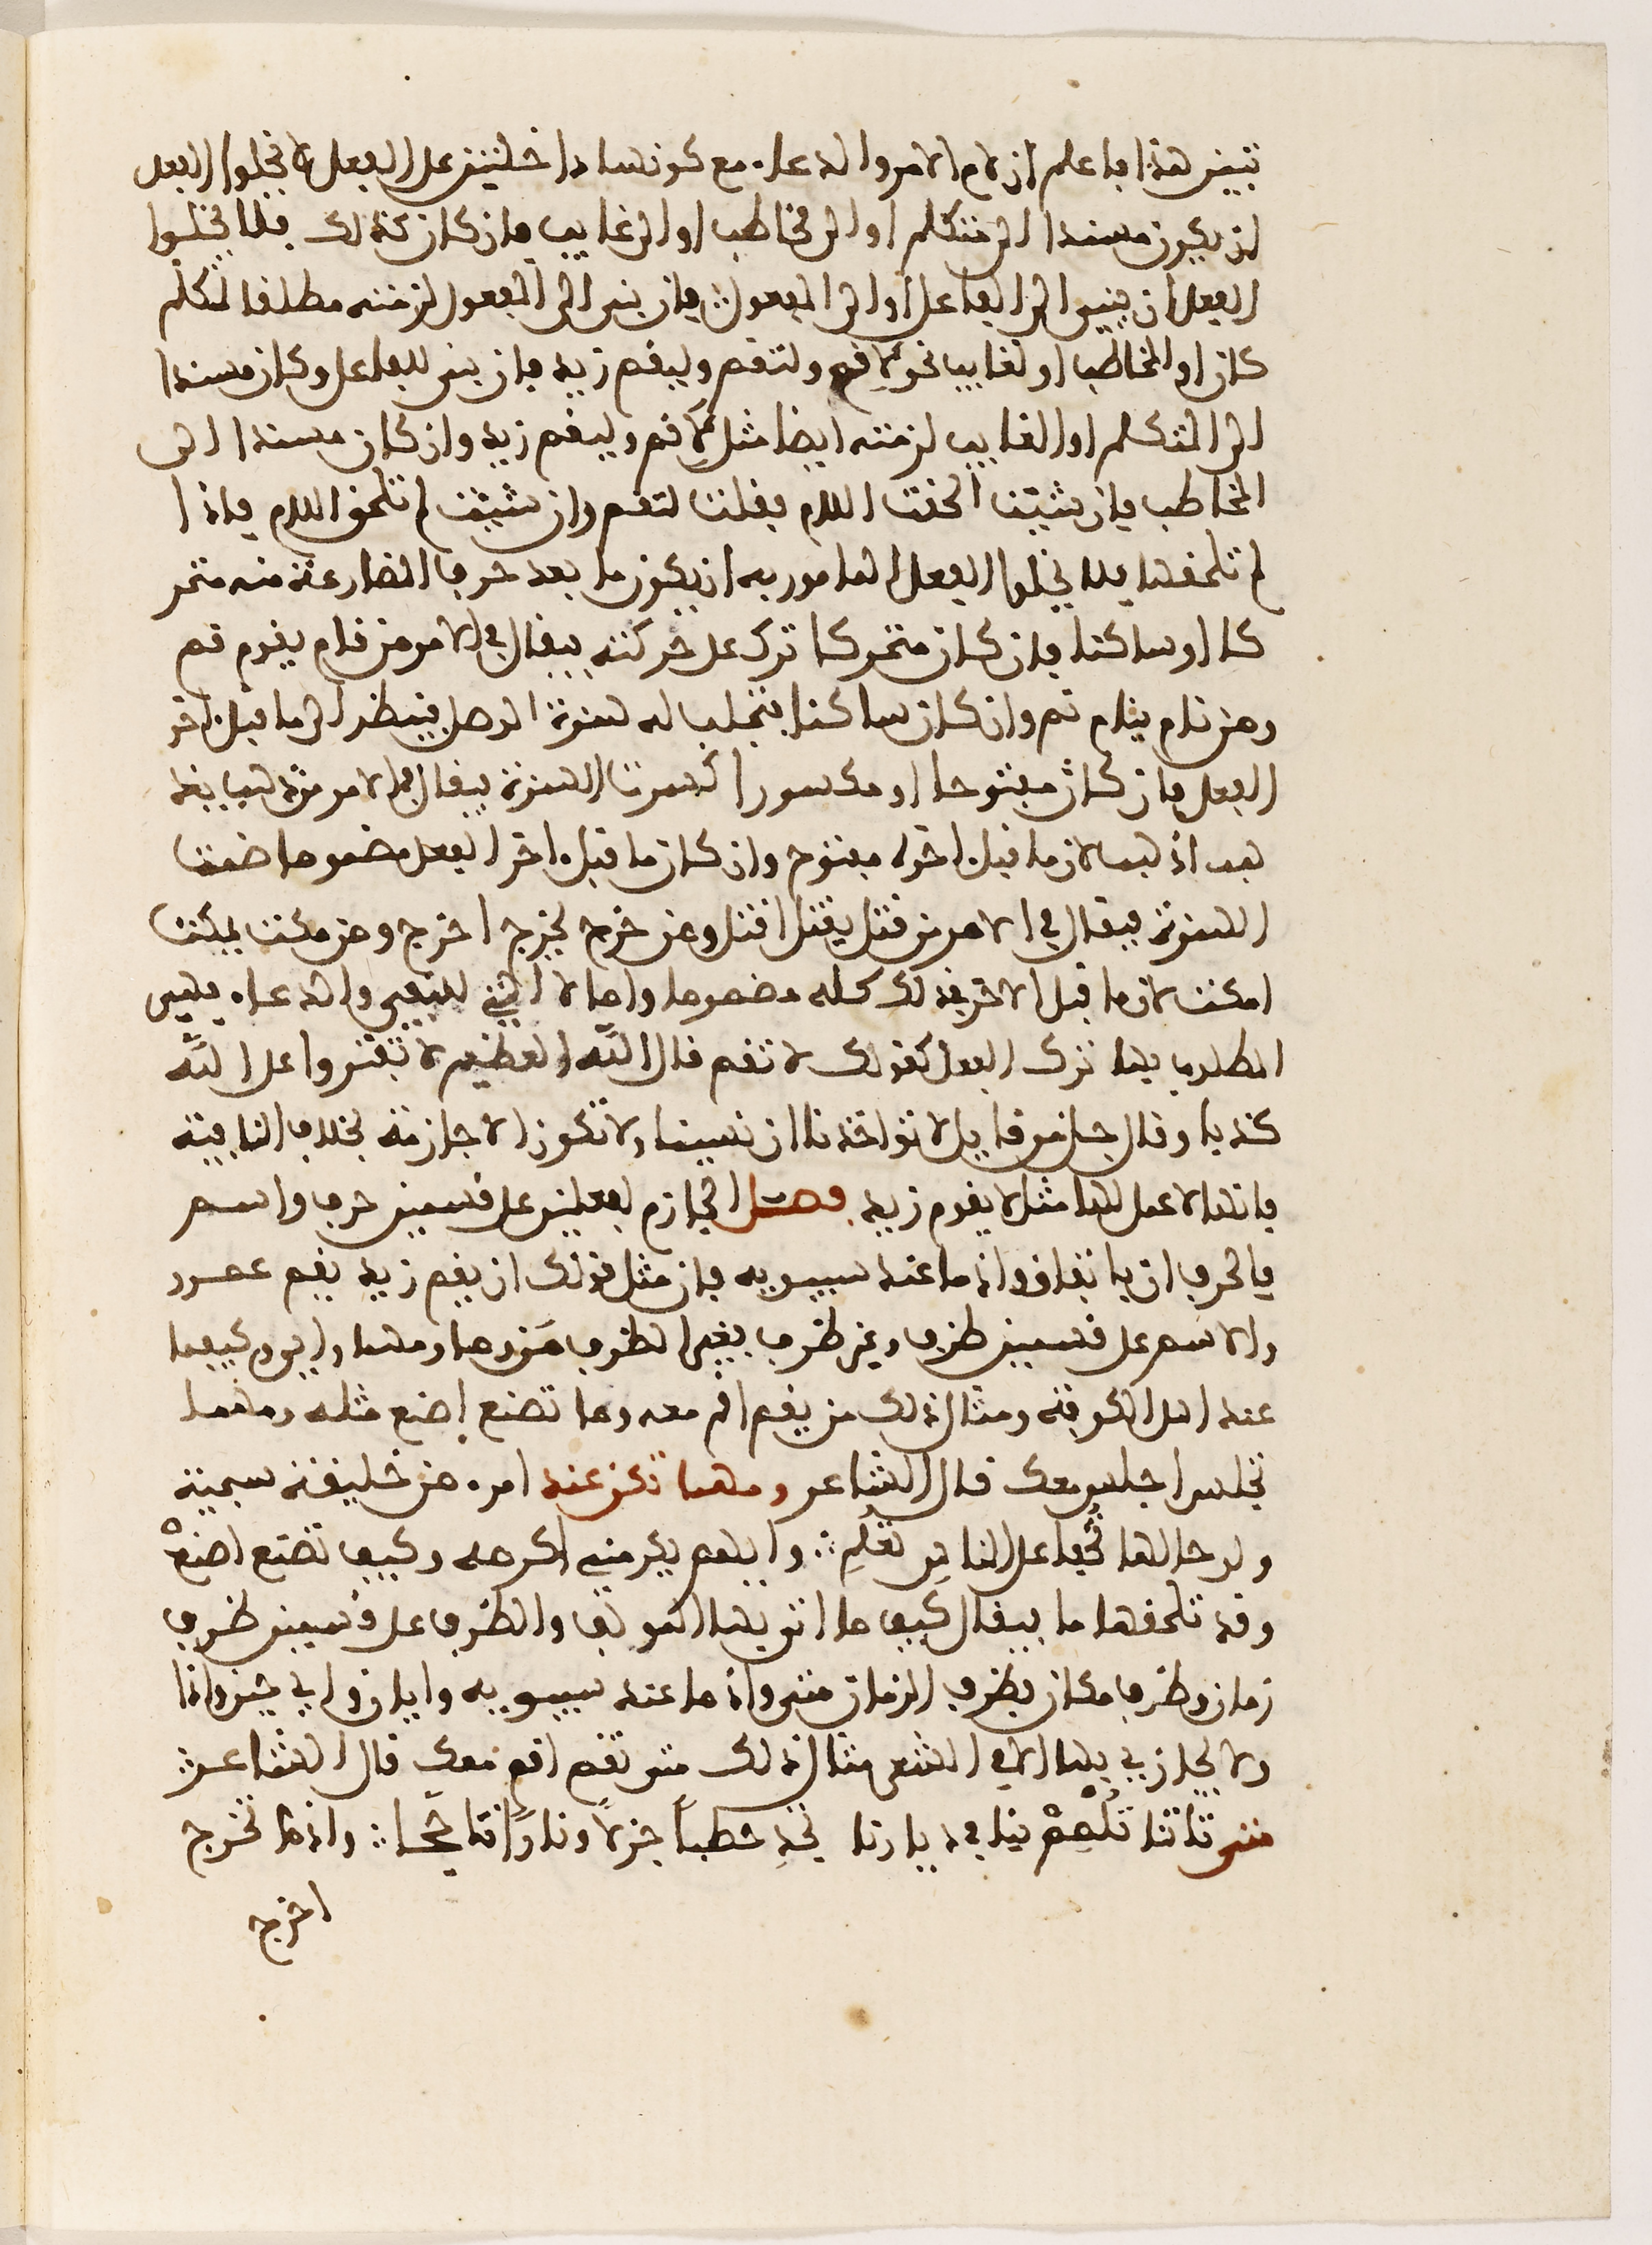 تبين هذا فاعلم ان لام الامر والدعاء مع كونهما داخلين على الفعل لا يخلوا الفعل
ان يكون مسندا الى متكلم او الى مخاطب او الى غايب فان كان كذلك فلا يخلوا
الفعل ان يبنى الى الفاعل او الى المفعول فان بنى الى المفعول لزمته مطلقا لمتكلم
كان او لمخاطب او لغايب نحو لاقم ولتقم وليقم زيد فان بنى للفاعل وكان مسندا
الى المتكلم او الغايب لزمته ايضا مثل لاقم وليقم زيد وان كان مسندا الى
المخاطب فان شئت الحقت اللام فقلت لتقم وان شئت لم تلحق اللام فاذا
لم تلحقها فلا يخلوا الفعل المامور به ان يكون ما بعد حرف المضارعة منه متحر
كا او ساكنا فان كان متحركا ترك على حركته فيقال في الامر من قام يقوم قم
ومن نام ينام نم وان كان ساكنا فتجلب له همزة الوصل فينظر الى ما قبل اخر
الفعل فان كان مفتوحا او مكسورا كسرت الهمزة فيقال في الامر من ذهب يذ
هب اذهب لان ما قبل اخره مفتوح وان كان ما قبل اخر الفعل مضموما ضمت
الهمزة فيقال في الامر من قتل يقتل اقتل ومن خرج يخرج اخرج ومن مكث يمكث
امكث لان ما قبل الاخر في ذلك كله مضموما واما لا التي للنهي والدعاء فهي
المطلوب بها ترك الفعل كقولك لا تقم قال الله العظيم لا تفتروا على الله
كذبا وقال جل من قايل لا تواخذنا ان نسينا ولا تكون الا جازمة بخلاف النافية
فانها لا عمل لها مثل لا يقوم زيد فصل الجازم لفعلين على قسمين حرف واسم
فالحرف ان باتفاق واذما عند سيبويه فان مثل قولك ان يقم زيد يقم عمرو
والاسم على قسمين ظرف وغير ظرف فغير الظرف من وما ومهما واي وكيفما
عند اهل الكوفة ومثال ذلك من يقم اقم معه وما تصنع اصنع مثله ومهما
تجلس اجلس معك قال الشاعر ومهما تكن عند امرء من خليقة سجية
ولو خالها تخفى على الناس تعلم وايهم يكرمني اكرمه وكيف تصنع اصنع
وقد تلحقها ما فيقال كيف ما اتى بها المولف والظرف على قسمين ظرف
زمان وظرف مكان فظرف الزمان متى واذ ما عند سيبويه وايان واي حين واذا
ولا يجازى بها الا في الشعر مثال ذلك متى تقم اقم معك قال الشاعر
متى تاتنا تلمم بنا في ديارنا تجد حطبا جزلا ونارا تاججا واذما تخرج
اخرج